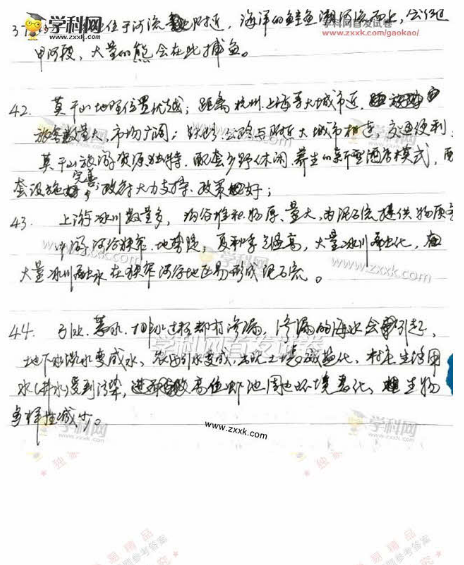 37. 位于河流附近，海洋的鲑鱼溯河而上，会经过
甲河段，大量的熊会在此捕鱼。
42. 莫干山地理位置优越，距离杭州、上海等大城市近，
游客数量大，市场广阔；铁路、公路与附近大城市相连，交通便利
莫干山旅游资源独特，配套乡野休闲、养生的新型酒店模式，配
套设施完善；政府大力支持，政策好；
43. 上游冰川数量多，冰川堆积物厚、量大，为泥石流提供物质
中游河谷狭窄、地势陡，夏季气温高，大量冰川融化，
大量冰川融水在狭窄河谷地区易形成泥石流。
44. 引水、蓄水、排水过程都有渗漏，渗漏的海水会引起
地下水淡水变咸水，农田引水变咸，土壤盐碱化，村民生活用
水(井水)受到污染，高位虾池周边环境恶化，生物
多样性减少。
学科网
www.zxxk.com
www.zxxk.com/gaokao/
学科网首发试卷
独家精品